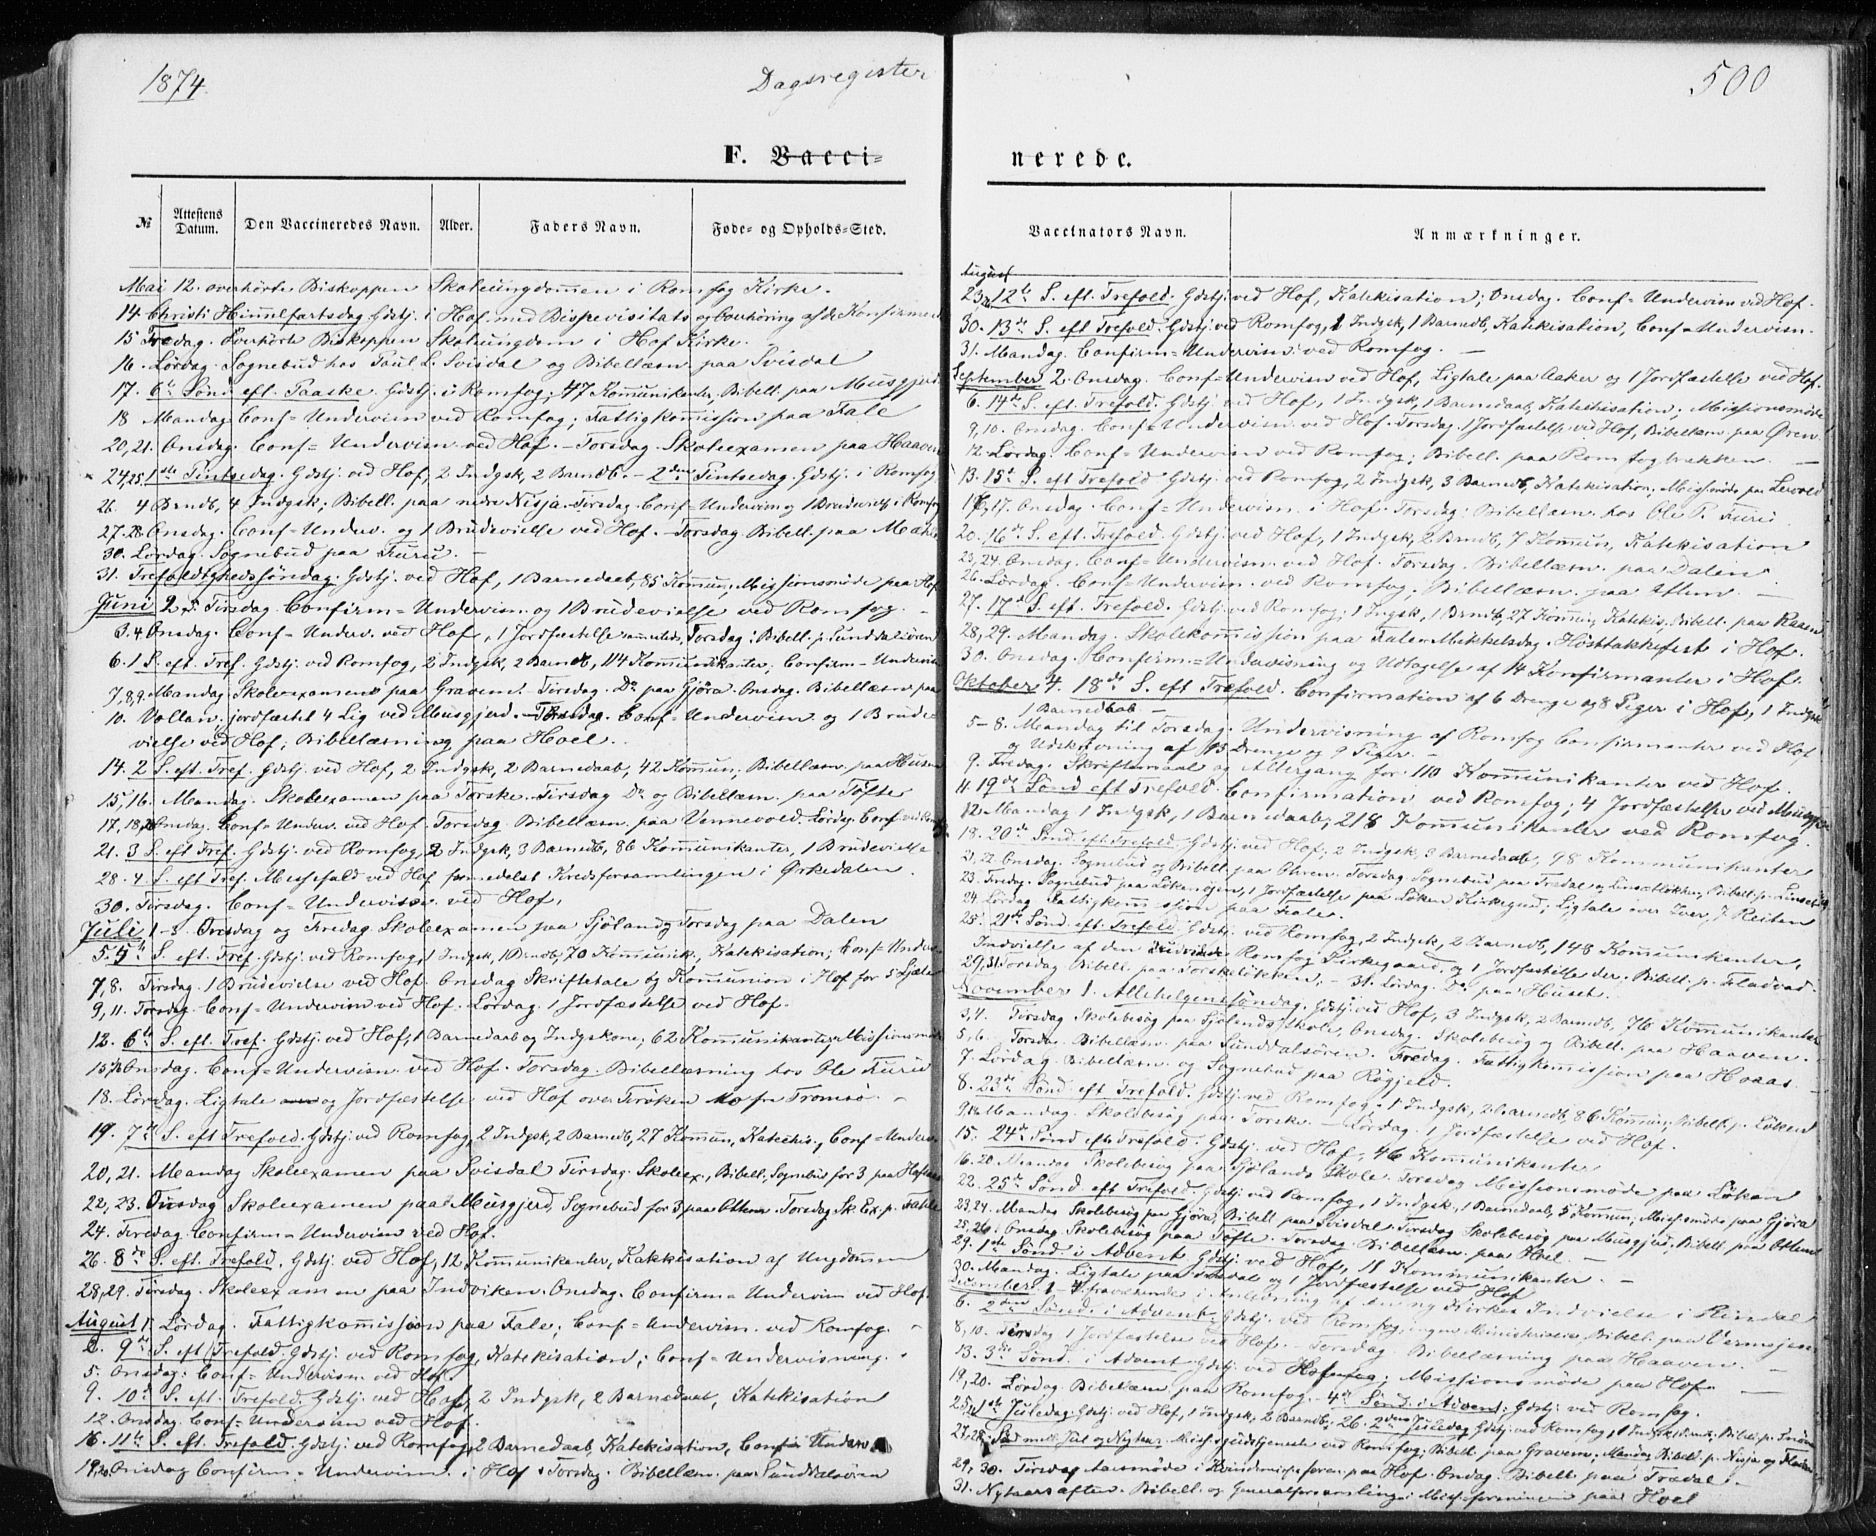 1874.
Dagsregister
500
F. Vacci-
nerede.
№
Attestens Datum.
Den Vaccineredes Navn.
Alder.
Faders Navn.
Føde- og Opholds-Sted.
Vaccinators Navn.
Anmærkninger.
Mai 12. overhørte Biskoppen Skoleungdommen i Romfog Kirke.
14 Christi Himmelfartsdag Gdstj. i Hof med Bispevisitats og Overhöring af de Konfirmed
15 Fredag. Overhörte Biskoppen Skoleungdom i Hof Kirke.
16. Lördag. Sognebud hos Paul L. Svisdal og Bibellæsn. paa Svisdal
17. 6te Sönd. eft. Paaske. Gdstj. i Romfog; 47 Kom̄unikanter; Bibell. paa Musgjerd
18 Mandag Conf= Undervisn ved Romfog; Fattigkom̄ission paa Fale
20, 21. Onsdag. Conf= Undervisn. ved Hof. – Torsdag. Skoleexamen paa Haaven
24,25 1ste Pintsedag. Gdstj. ved Hof, 2 Indgsk, 2 Barnedb. – 2den Pintsedag. Gdstj. i Romfog
26. 4 Brndb, 4 Indgsk. Bibell. paa nedre Nisja. Tirsdag. Conf= Undervisn og 1 Brudevielse i Romfog
27.28 Onsdag. Conf= Underv. og 1 Brudevielse ved Hof. – Torsdag Bibell. paa
30. Lördag. Sognebud paa Furu.
31. Trefoldighedssöndag. Gdstj. ved Hof, 1 Barnedaab, 85 Kom̄un, Missionsmöde paa Hof
Juni 2. Tirsdag. Confirm= Undervisn. og 1 Brudevielse ved Romfog.
3.4 Onsdag. Conf= Underv. ved Hof, 1 Jordfæstelse sammesteds, Torsdag: Bibell. p. Sunddalsören
6. 1 S. eft. Tref. Gdstj. ved Romfog, 2 Indgsk, 2 Barnedb, 114 Kom̄unikanter; Confirm= Undervisn
7,8,9. Mandag Skoleexamen paa Graven. Tirsdag. Do paa Gjöra. Onsdag. Bibellæsn. paa
10. Vollan, jordfæstet 4 Lig ved Musgjerd. – Torsdag. Conf= Undervisn og 1 Brude-
vielse ved Hof; Bibellæsning paa Hoel.
14. 2 S. eft. Tref. Gdstj. ved Hof, 2 Indgsk, 2 Barnedaab, 42 Kom̄un; Bibellæsn. paa Husen
15,16. Mandag. Skoleexamen paa Torske. Tirsdag Do og Bibellæsn. paa Töfte
17,18, Onsdag. Conf= Underv. ved Hof. Torsdag. Bibellæsn. paa Vennevold. Lördag. Conf ved
21. 3 S. eft Tref. Gdstj. ved Romfog, 2 Indgsk, 3 Barnedb, 86 Kom̄unikanter, 1 Brudevielse
28. 4 S. eft Tref. Messefald ved Hof formedelst Kredsforsamlingen i Orkedalen.
30. Tirsdag. Conf= Undervisn. ved Hof.
Juli 1-3. Onsdag og Fredag. Skoleexamen paa Sjöland, Torsdag paa Dalen
5. 5te S. eft. Tref. Gdstj. ved Romfog, 1 Indgsk, 1 Brndb, 70 Kom̄unik., Katekisation; Conf= Underv.
7, 8. Tirsdag. 1 Brudevielse ved Hof. Onsdag Skriftetale og Kom̄union i Hof for 5 Sjæle
9, 11. Torsdag. Conf= Undervisn ved Hof. Lördag. 1 Jordfæstelse ved Hof.
12. 6te S. eft. Tref. Gdstj. ved Hof, 1 Barnedaab og Indgskone; 62 Kom̄unikanter, Missionsmöde
15,16 Onsdag. Conf= Undervisn. ved Hof. Torsdag. Bibellæsning hos Ole Furu
18. Lördag. Ligtale og Jordfæstelse ved Hof over Fröken Mo fra Tromsö.
19. 7de S. eft Trefold. Gdstj. ved Romfog, 2 Indgsk, 2 Barnedb, 27 Kom̄un, Katechis., Conf= Underv.
20, 21. Mandag Skoleexamen paa Svisdal Tirsdag. Skoleex., Bibell. Sognebud for 3 paa
22, 23. Onsdag Skoleexamen paa Musgjerd, Sognebud for 3 paa Ottem Torsdag Sk. Ex. p. Fahle
24. Fredag Confirm= Undervisn ved Hof.
26. 8de S. eft. Trefold. Gdstj. ved Hof, 12 Kom̄unikanter, Katekisation af Ungdom̄en
28,29. Tirsdag. Skoleexamen paa Indviken. Onsdag. Confirm= Undervisn ved Hof.
August 1. Lördag. Fattigkom̄ission paa Fale; Conf= Undervisn. ved Romfog.
2. 9de S. eft Trefold. Gdstj. ved Romfog, Katekisation; Conf= Undervisning.
5. Onsdag: Conf= Undervisn ved Hof.
9. 10de S. eft. Trefold. Gdstj. ved Hof, 2 Indgsk, 2 Barnedaab, Katekisation
12. Onsdag. Conf= Undervisn ved Hof.
16. 11te S. eft. Trefold. Gdstj. ved Romfog, 2 Barnedaab, Katekisation, Conf= Underv
19,20 Onsdag Confirm= Undervisn. i Hof. Torsdag. Bibellæsn. paa Sunddalsören
August
23. 12te S. eft. Trefold. Gdstj. ved Hof, Katekisation; Onsdag. Conf= Undervisn ved Hof.
30. 13de S. eft Trefold. Gdstj. ved Romfog, 1 Indgsk, 1 Barnedb, Katekisation, Conf= Undervisn.
31. Mandag. Confirm= Undervisn. ved Romfog. –
September 2. Onsdag. Conf= Undervisn ved Hof, Ligtale paa Aaker og 1 Jordfæstelse ved Hof.
6. 14de S. eft. Trefold. Gdstj. ved Hof, 1 Indgsk, 1 Barnedaab, Katekisation, Missionsmöde
9, 10. Onsdag. Conf= Undervisn. ved Hof. Torsdag 1 Jordfæstelse ved Hof, Bibellæsn. paa Ören
12. Lördag. Conf= Undervisn ved Romfog; Bibell. paa Romfogbakken.
13. 15de S. eft Trefold Gdstj. ved Romfog, 2 Indgsk, 3 Barnedb, Katekisation, Missmöde paa
16,17. Onsdag. Conf= Undervisn. i Hof. Torsdag: Bibellæsn. hos Ole P. Furu
20. 16de S. eft. Trefold. Gdstj. ved Hof, 1 Indgsk, 2 Brndb, 7 Kom̄un, Katekisation
23, 24. Onsdag. Conf= Undervisn. ved Hof. Torsdag. Bibellæsn. paa Dalen
26. Lördag. Conf= Undervisn. ved Romfog; Bibellæsn. paa Ottem.
27. 17de S. eft. Trefold. Gdstj. ved Romfog, 1 Indgsk, 1 Brndb, 27 Kom̄un, Katekis., Bibell. paa Raaen
28, 29. Mandag. Skolekom̄ission paa Fale. Mikkelsdag. Hösttakkefest i Hof.
30. Onsdag. Confirm= Undervisning og Udtagelse af 14 Konfirmanter i Hof.
Oktober 4. 18de S. eft Trefold. Confirmation af 6 Drenge og 8 Piger i Hof, 1 Indgsk
1 Barnedaab –
5-8. Mandag til Torsdag. Undervisning af Romfog Confirmanter ved Hof
og Udskrivning af 15 Drenge og 9 Piger. –
9. Fredag. Skriftemaal og Altergang for 110 Kom̄unikanter ved Hof.
11. 19de Sönd eft Trefold. Confirmation ved Romfog; 4 Jordfæstelser ved Musgjerd
12. Mandag 1 Indgsk, 1 Barnedaab, 218 Kom̄unikanter ved Romfog.
18. 20de Sönd. eft Trefold. Gdstj. ved Hof; 2 Indgsk, 3 Barnedaab, 98 Kommunikanter
21, 22. Onsdag. Sognebud og Bibell. paa Öhren. Torsdag Sognebud paa Tredal og
23. Fredag. Sognebud paa Lökenöjen, 1 Jordfæstelse paa Löken Kirkegrd; Ligtale over Iver
24. Lördag Fattigkom̄ission paa Fale.
25. 21de Sönd. eft Trefold. Gdstj. ved Romfog, 2 Indgsk, 2 Barnedb, 148 Kom̄unikanter,
Indvielse af den Romfog Kirkegaard, og 1 Jordfæstelse der. Bibell. p. Fladvad.
29,31 Torsdag Bibell. paa Torskelökken; – 31. Lördag. Do paa Huset.
November 1. Allehelgenssöndag. Gdstj. ved Hof, 3 Indgsk, 2 Barnedb, 76 Kom̄unikanter
3,4. Tirsdag Skolebesög paa Sjölands Skole, Onsdag. Skolebesög og Bibell. paa Haaven.
5, 6. Torsdag. Bibellæsn. paa Sunddalsören. Fredag. Fattigkom̄ission paa Hoaas
7. Lördag. Bibellæsn. og Sognebud paa Rögjeld.
8. 23de Sönd eft Trefold. Gdstj. ved Romfog, 1 Indgsk, 2 Barnedb, 86 Kom̄un; Bibell. p. Löken
9,14 Mandag. Skolebesög paa Torske. – Lördag. 1 Jordfæstelse ved Hof.
15. 24de Sönd eft Trefold. Gdstj. ved Hof, 46 Kom̄unikanter
16. 20 Mandag Skolebesög paa Sjölands Skole. Torsdag Missionsmöde paa Löken
22. 25de Sönd. eft Trefold. Gdstj. ved Romfog, 1 Indgsk, 1 Barnedb, 5 Kom̄un; Missmöde paa Gjöra
23,24. Mandag Skolebesög paa Gjöra, Bibell. paa Svisdal Tirsdag Skolebesög paa Musgjerd, Bibell. paa Ottem
25, 26. Onsdag Skolebesög paa Töfte. Torsdag. Bibellæsn. paa Hoel.
29. 1ste Sönd. i Advent Gdstj. ved Hof, 11 Kommunikanter.
30. Mandag. Ligtale paa Tredal og 1 Jordfæstelse ved Hof
December 1-4. fraværende i Anledning af en ny Kirkes Indvielse i Rindal
6. 2den Sönd. i Advent. Gdstj. ved Romfog, ingen Ministerialia, Bibell. paa
8, 10. Tirsdag 1 Jordfæstelse ved Hof. – Torsdag. Bibellæsning paa Haaven.
13. 3de Sönd. i Advent Gdstj. ved Hof; Missionsmöde paa Hof –
19, 20. Lördag. Bibellæsn paa Romfog. – 4de Sönd. i Advent; Gdstj. ved Romfog.
25. 1ste Juledag. Gdstj. ved Hof, 1 Indgsk, 2 Barnedb; 26. 2den Juledag Gdstj. ved Romfog, 1 Indgsk,
27, 28. Sönd mell Jul og Nytaar. Missgudstjeneste ved Romfog; Bibell. paa Graven; Mandag Bibell. p. Nisja og
29, 30. Tirsdag Aarsmöde i Kvindemissforen. paa Hof. Onsdag. Bibell. paa Tredal.
31. Nytaarsaften. Bibell. og Generalforsamling i Missforeningen paa Hoel